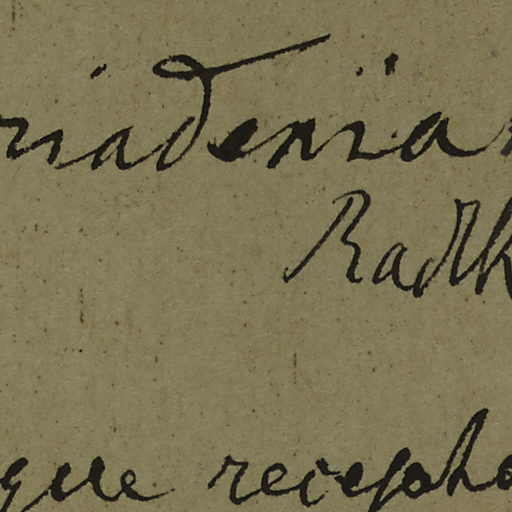 riadenia
Radlk
que recepta